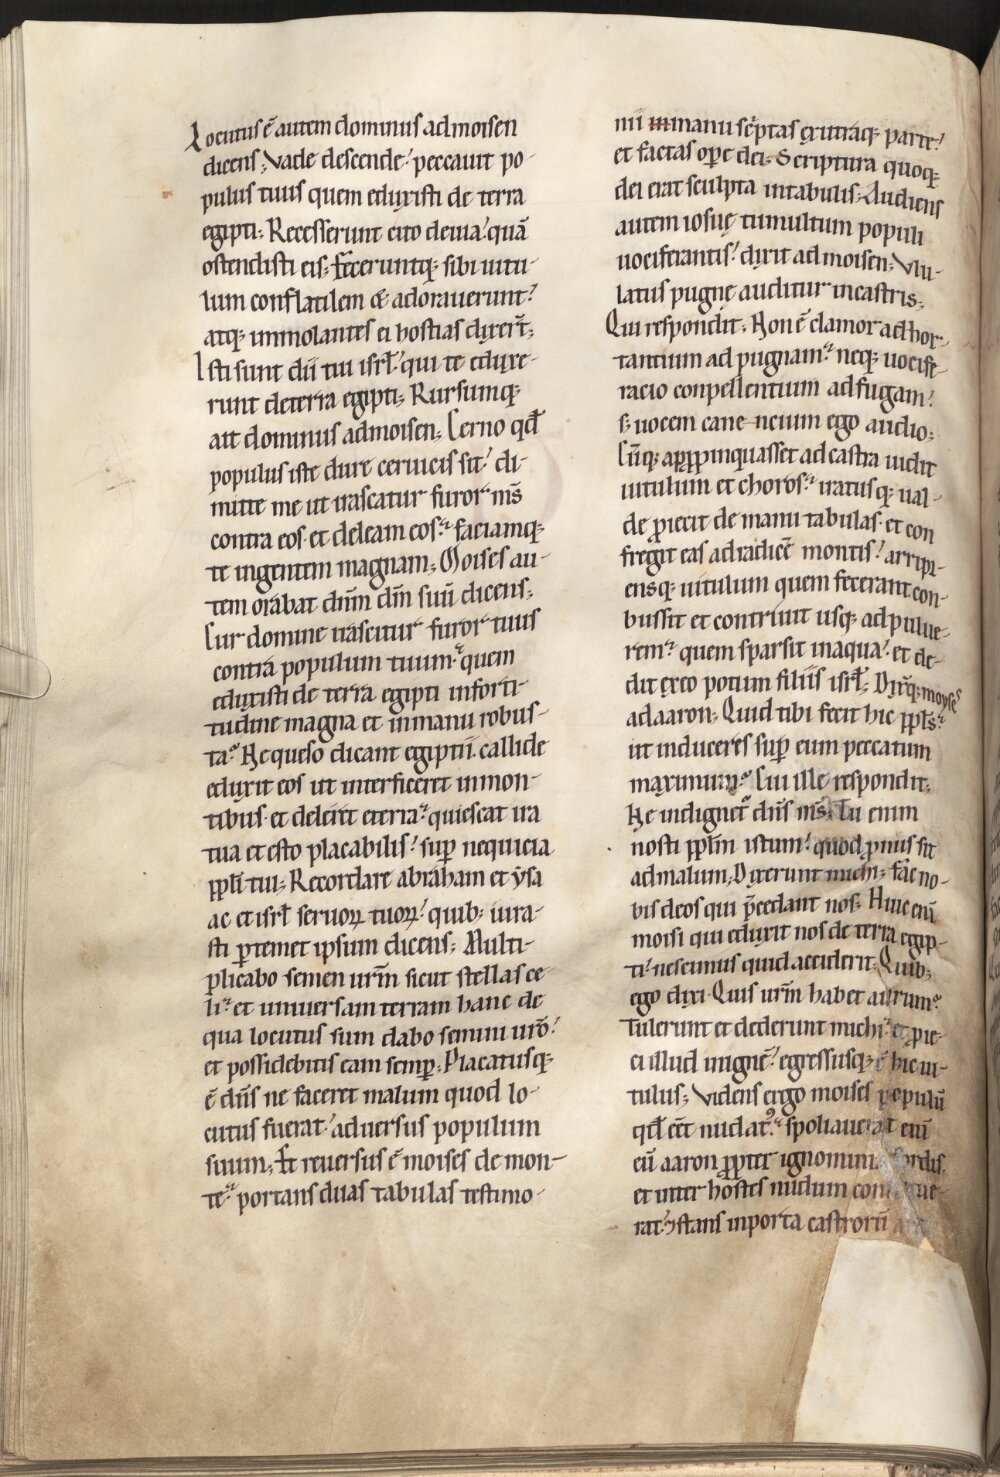 Locutus ẽ autem dominus ad moisen
dicens; Vade descende? peccauit po-
pulus tuus quem eduxisti de terra
egipti; Recesserunt cito de uia? quā
ostendisti eis; Feceruntq; sibi uitu-
lum conflatilem & adorauerunt?
atq; immolantes ei hostias dixer̄t;
Isti sunt dii tui isrł? qui te eduxe-
runt de terra egipti; Rursumq;
ait dominus ad moisen; Cerno qđ
populus iste dure ceruicis sit? di-
mitte me ut irascatur furor ms̄
contra eos et deleam eos? faciamq;
te in gentem magnam; Moises au-
tem orabat dn̄m dm̄ suū dicens;
Cur domine irascitur furor tuus
contra populum tuum? quem
eduxisti de terra egipti in forti-
tudine magna et in manu robus-
ta? Ne queso dicant egiptii. callide
eduxit eos ut interficeret in mon-
tibus et deleret e terra? quiescat ira
tua et esto placabilis? sup̄ nequicia
pp̄li tui; Recordare abraham et ysa
ac et isrł seruoꝝ tuoꝝ? quib; iura-
sti p̄ temet ipsum dicens; Multi-
plicabo semen ur̄m sicut stellas ce-
li? et uniuersam terram hanc de
qua locutus sum dabo semini ur̄o?
et possidebitis eam semp̄; Placatusq;
ẽ dn̄s ne faceret malum quod lo-
cutus fuerat? aduersus populum
suum; Et reuersus ẽ moises de mon-
te? portans duas tabulas testimo-
nii in manu sc̄ptas ex utraq; parte?
et factas oꝑe dei; Scriptura quoq;
dei erat sculpta in tabulis; Audiens
autem iosuę tumultum populi
uociferantis? dixit ad moisen; Vlu-
latus pugnę auditur in castris;
Qui respondit; Non ẽ clamor ad hor-
tantium ad pugnam? neq; uocife-
racio conpellentium ad fugam?
s; uocem canencium ego audio;
Cūq; apꝓpinquasset ad castra uidit
uitulum et choros? iratusq; ual-
de ꝓiecit de manu tabulas et con
fregit eas ad radicē montis? arripi-
ensq; uitulum quem fecerant con-
bussit et contriuit usq; ad pulue-
rem? quem sparsit in aqua? et de-
dit ex eo potum filiis isrł; Dix̄q; moyses
ad aaron; Quid tibi fecit hic pp̄ls?
ut induceres sup̄ eum peccatum
maximum? Cui ille respondit;
Ne indignet̄ dn̄s ms̄; Tu enim
nosti pp̄lm istum? quod ꝓnus sit
ad malum; Dixerunt michi; fac no-
bis deos qui p̄cedant nos; Huic enī
moisi qui eduxit nos de terra egip-
ti? nescimus quid acciderit; Quib;
ego dixi. Quis ur̄m habet aurum?
Tulerunt et dederunt michi? et ꝓie-
ci illud in ignē? egressusq; ẽ hic ui-
tulus; Videns ergo moises populū
qđ eēt nudat9? spoliauerat enī
eū aaron ꝓpter ignomini sordis
et inter hostes nudum con
rat? & stans in porta castrorū